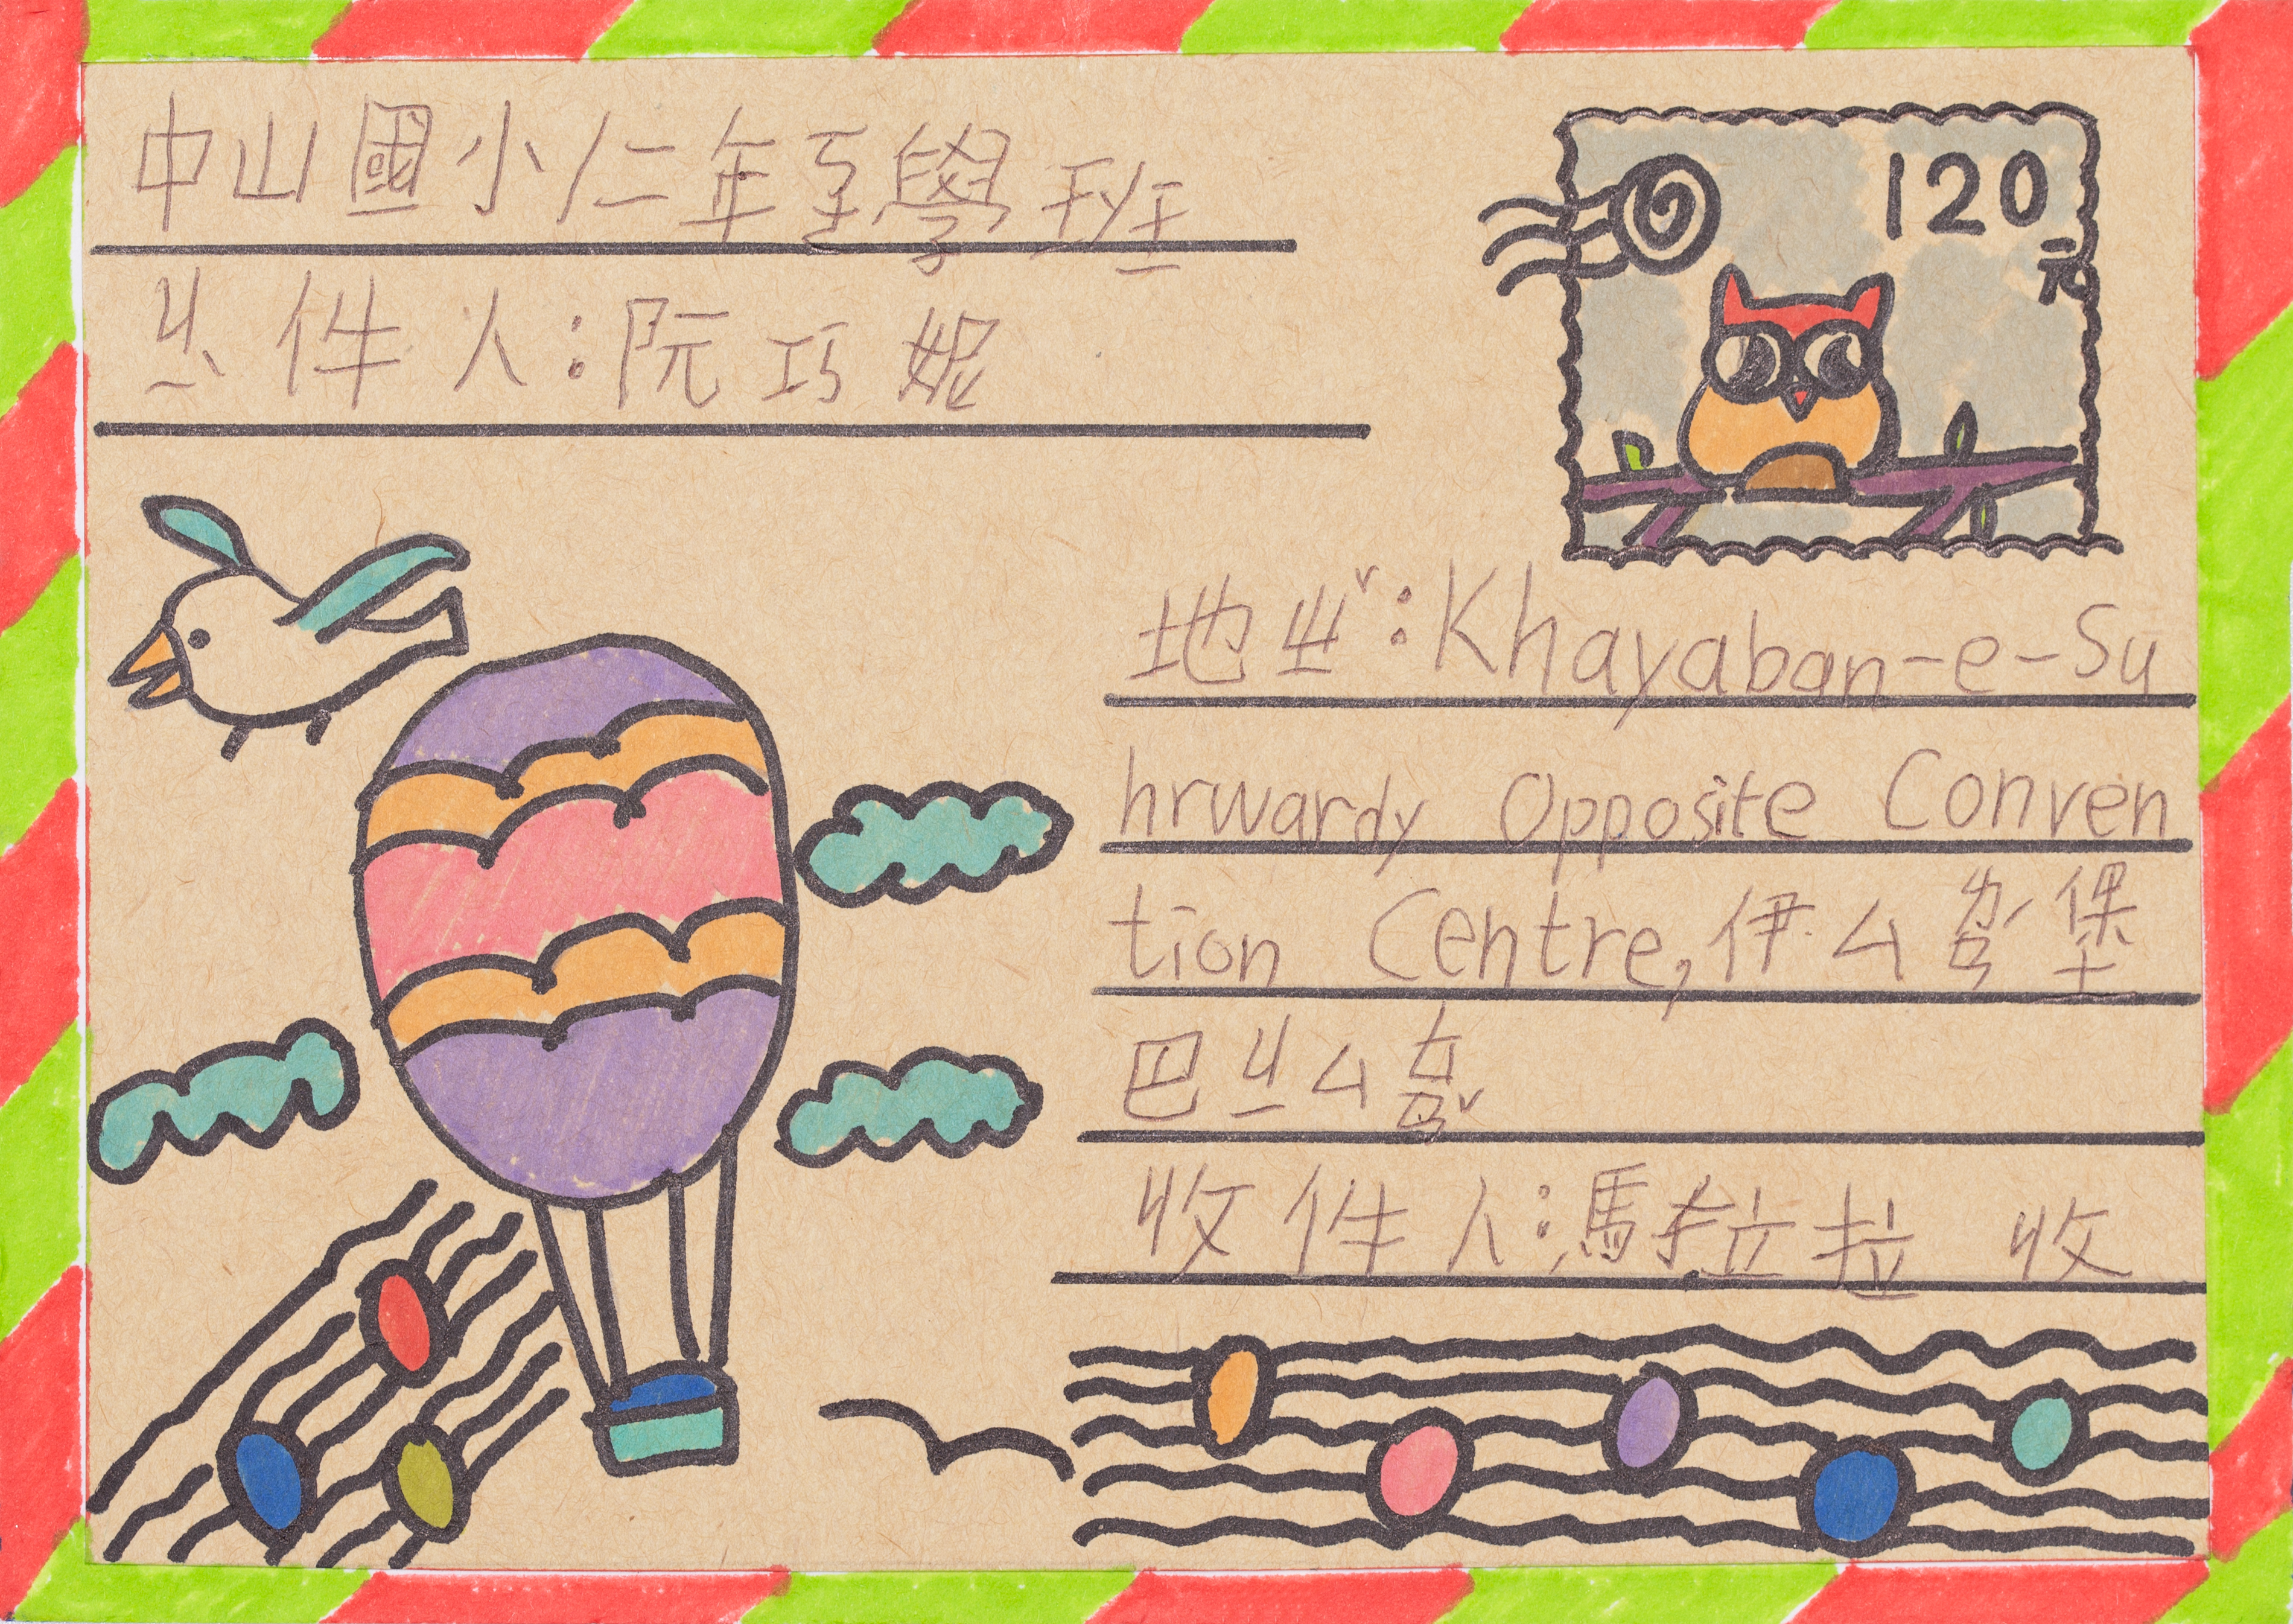 中山國小仁年至學班
ㄐㄧˋ件人:阮巧妮
120
元
地ㄓˇ:Khayaban-e-Su
hrwardy Opposite Conven
tion Centre,伊ㄙㄌㄢˊ堡
巴ㄐㄧㄙㄊㄢˇ
收件人:馬拉拉 收